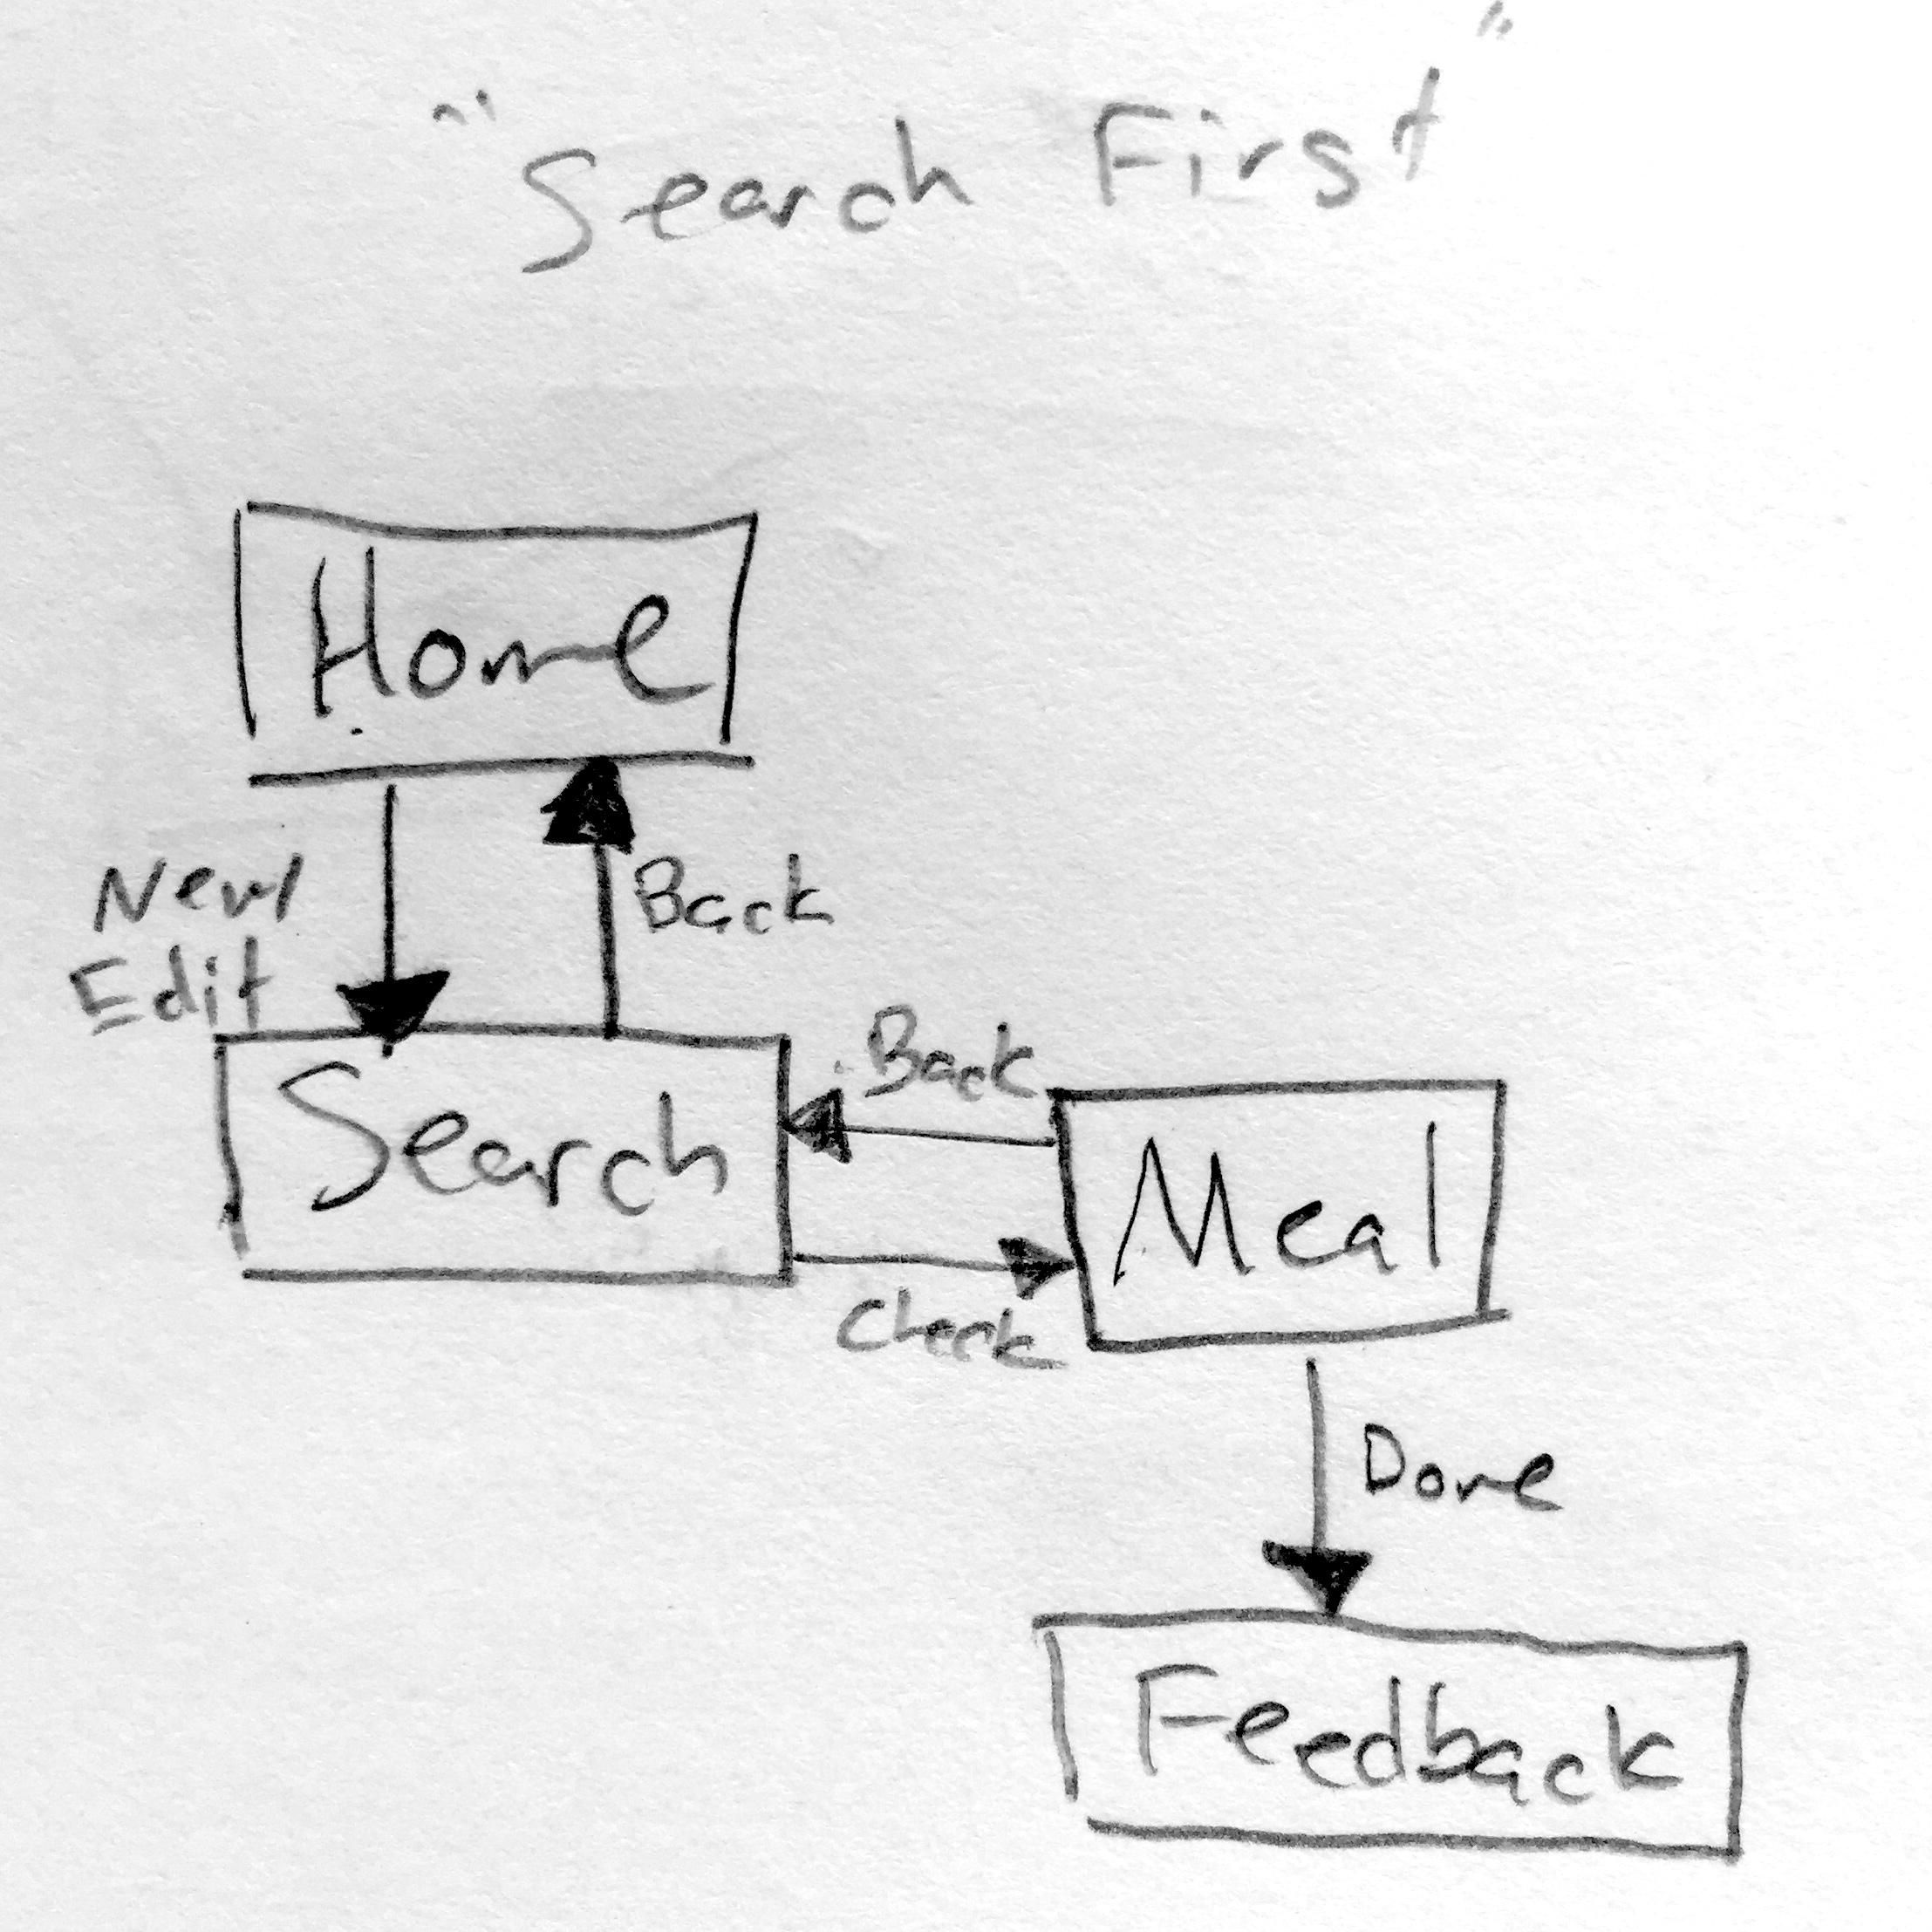 "Search First"
Home
New/
Edit
Back
Back
Search
Meal
Check
Done
Feedback